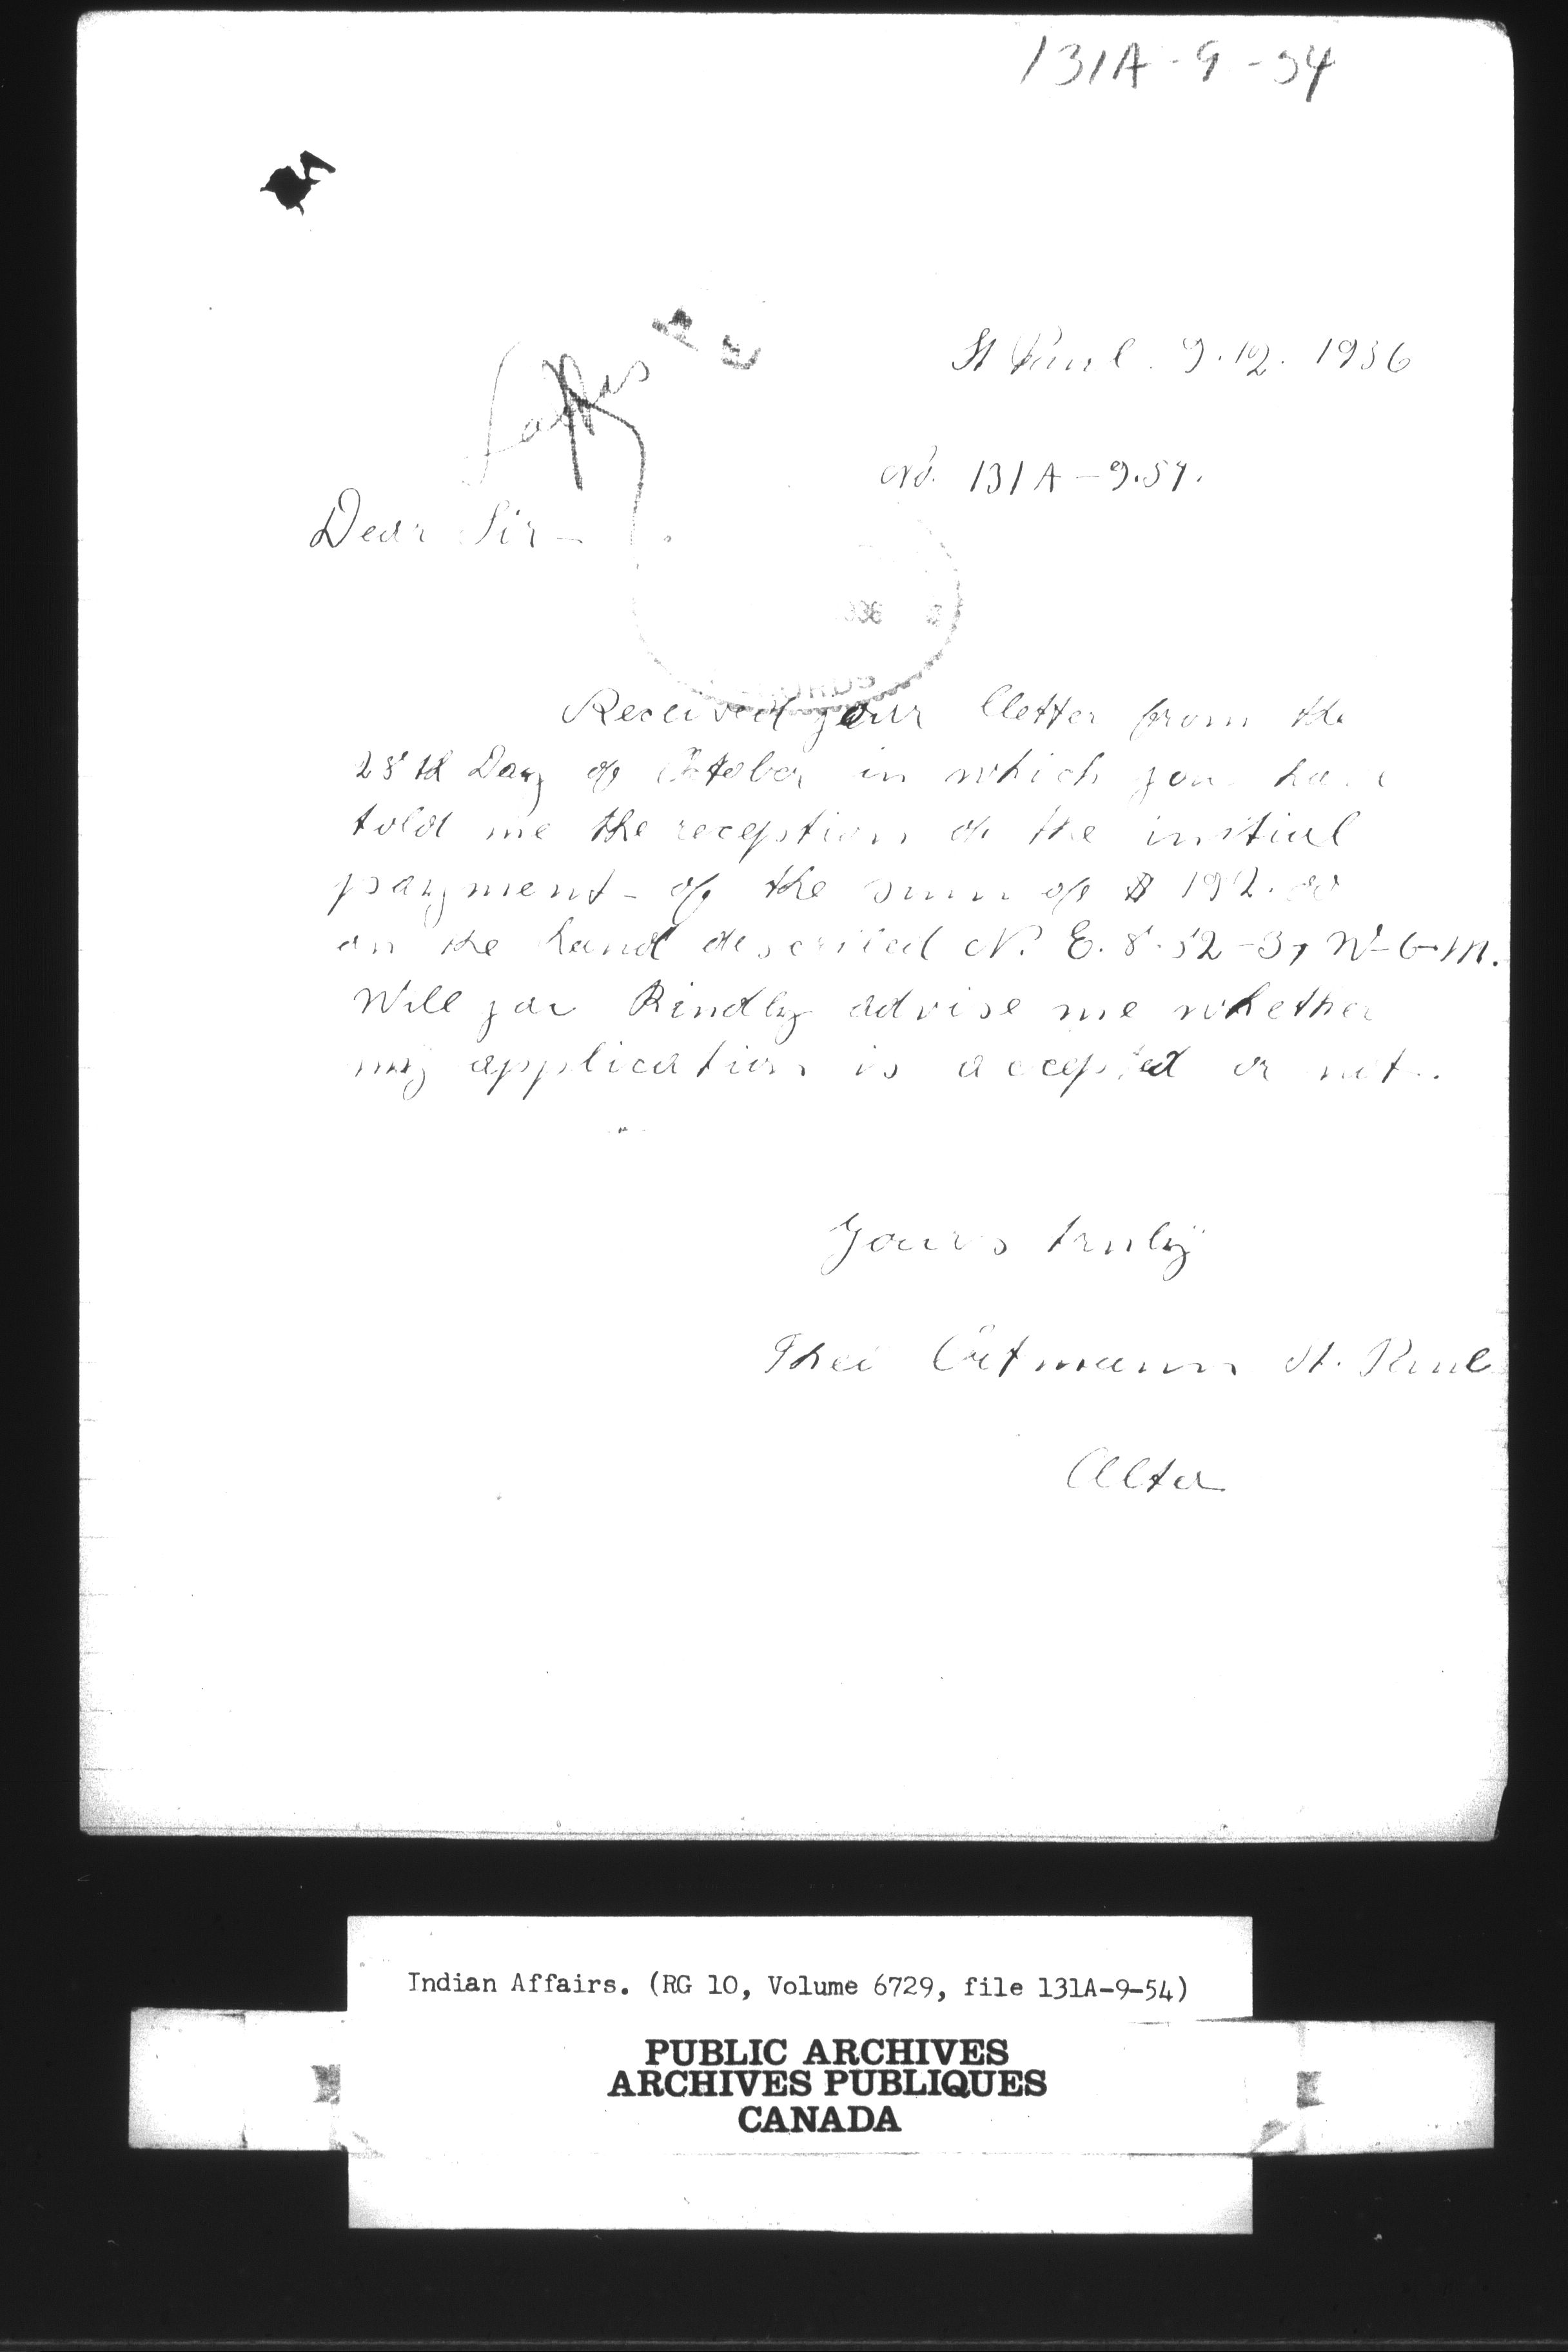 131A-9-54
St Paul. 9.12. 1936
No. 131A-9.54.
Dear Sir -
Received your lletter from the
28th Day of October in which you have
told me the reception of the initial
payment - of the sum of $ 192.00
on the Land described N. E. 8-52-3, W-6-M.
Will you Kindly advise me whether
my application is accepted or not.
Yours truly
Theo Ortmann St. Paul
Alta
Indian Affairs. (RG 10, Volume 6729, file 131A-9-54)
PUBLIC ARCHIVES
ARCHIVES PUBLIQUES
CANADA